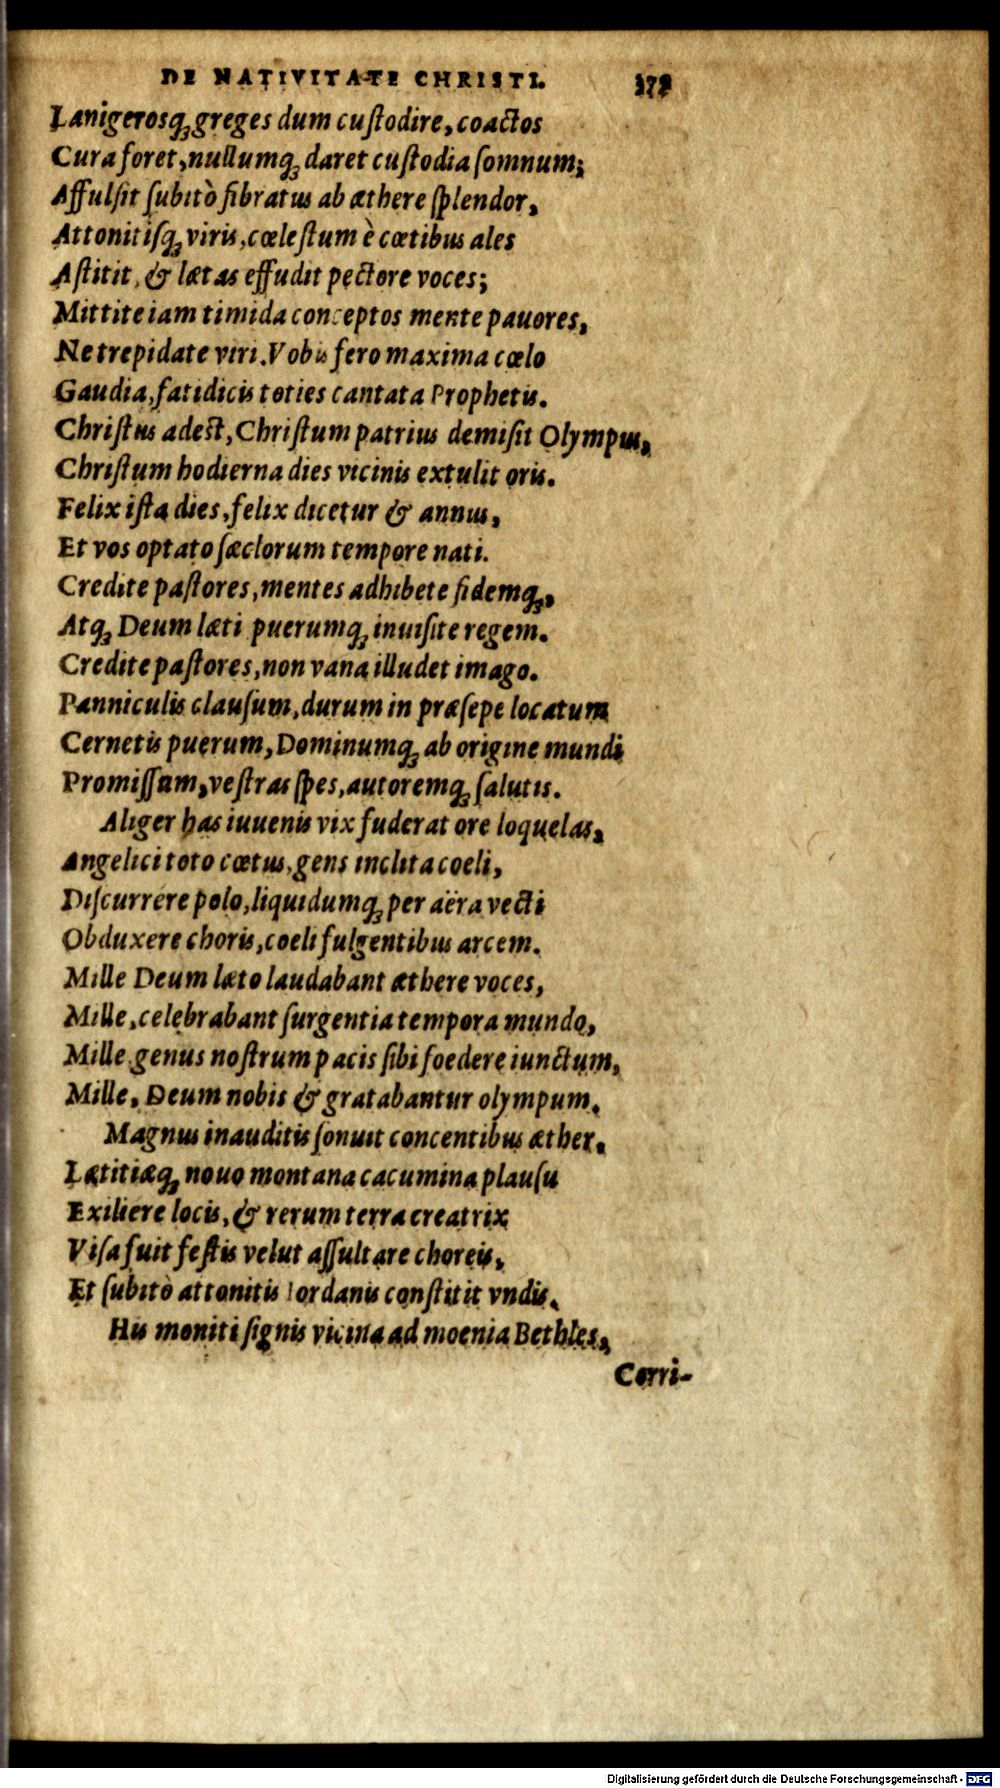 DE NATIVITATE CHRISTI.
Lanigerosq́ꝫ greges dum cuſtodire, coactos
Cura foret, nullumq́ꝫ daret cuſtodia ſomnum;
Affulſit ſubitò fibratus ab æthere ſplendor,
Attonitiſq́ꝫ viris, cœleſtum è cœtibus ales
Aſtitit, & lætas effudit pectore voces;
Mittite iam timida conceptos mente pauores,
Ne trepidate viri. Vobis fero maxima cœlo
Gaudia, fatidicis toties cantata Prophetis.
Chriſtus adeſt, Chriſtum patrius demiſit Olympus,
Chriſtum hodierna dies vicinis extulit oris.
Felix iſta dies, felix dicetur & annus,
Et vos optato ſæclorum tempore nati.
Credite paſtores, mentes adhibete fidemq́ꝫ,
Atq́ꝫ Deum læti puerumq́ꝫ inuiſite regem.
Credite paſtores, non vana illudet imago.
Panniculis clauſum, durum in præſepe locatum
Cernetis puerum, Dominumq́ꝫ ab origine mundi
Promiſſum, veſtras ſpes, autoremq́ꝫ ſalutis.
Aliger has iuuenis vix fuderat ore loquelas,
Angelici toto cœtus, gens inclita coeli,
Diſcurrére polo, liquidumq́ꝫ per aëra vecti
Obduxere choris, coeli fulgentibus arcem.
Mille Deum læto laudabant æthere voces,
Mille, celebrabant ſurgentia tempora mundo,
Mille genus noſtrum pacis ſibi foedere iunctum,
Mille, Deum nobis & gratabantur olympum.
Magnus inauditis ſonuit concentibus æther.
Lætitiæq́ꝫ nouo montana cacumina plauſu
Exiliere locis, & rerum terra creatrix
Viſa fuit feſtis velut aſſultare choreis,
Et ſubitò attonitis Iordanis conſtitit vndis.
His moniti ſignis vicina ad moenia Bethles,
Corri-
Digitalisierung gefördert durch die Deutsche Forschungsgemeinschaft - DFG